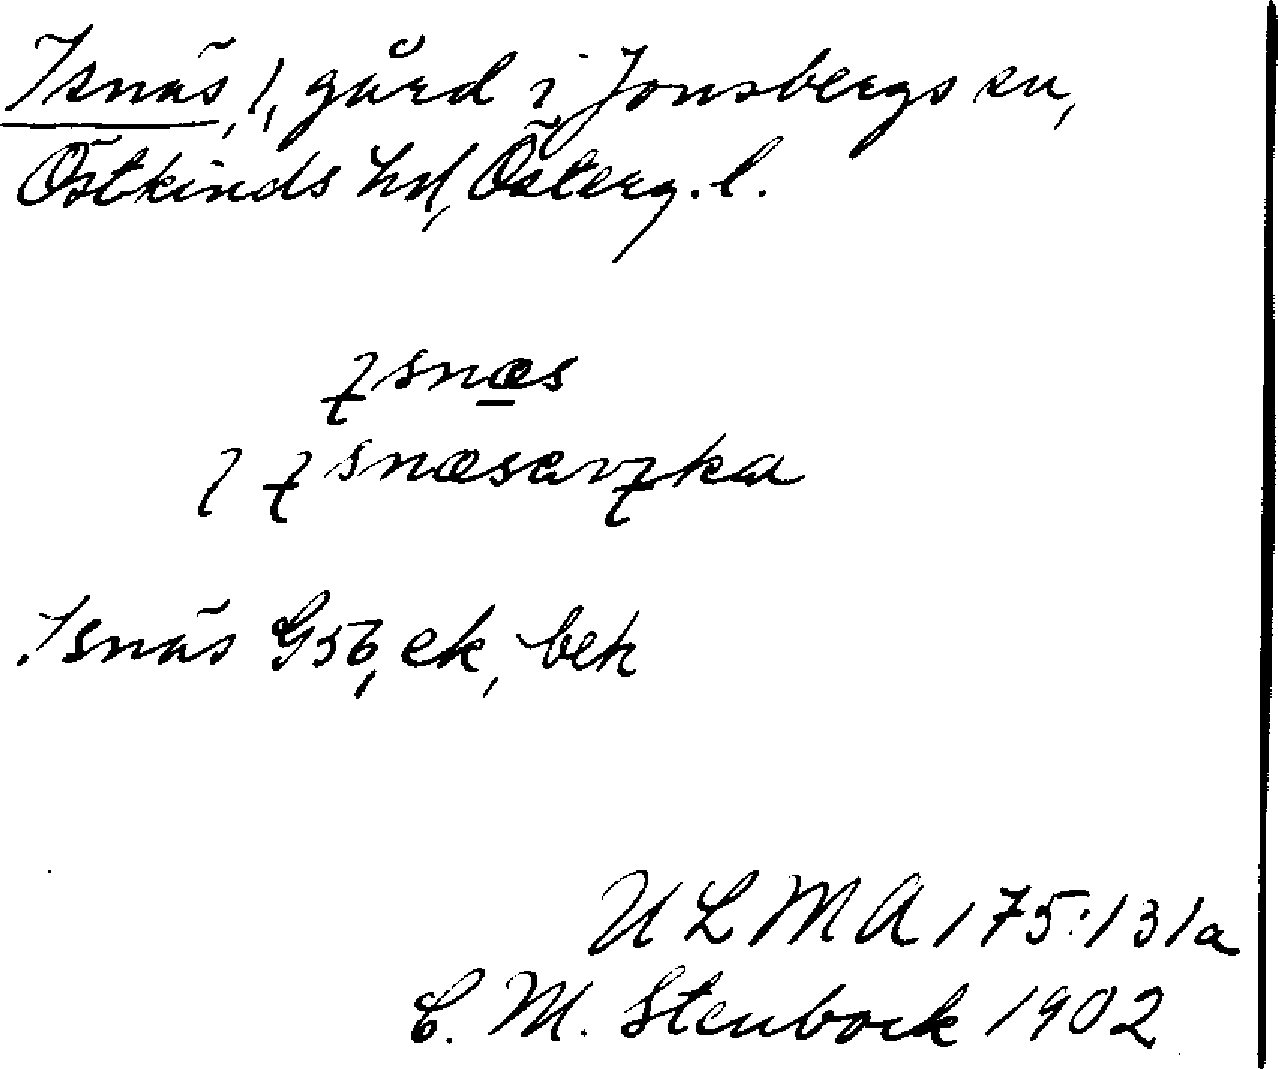 Isnäs, 1, gård i Jonsbergs sn,
Östkinds hd, Österg. l.
ɿsnæs
ɿ ɿsnæsavɿka
Isnäs G56, ek, bek
ULMA 175:131a
C. M. Stenbock 1902